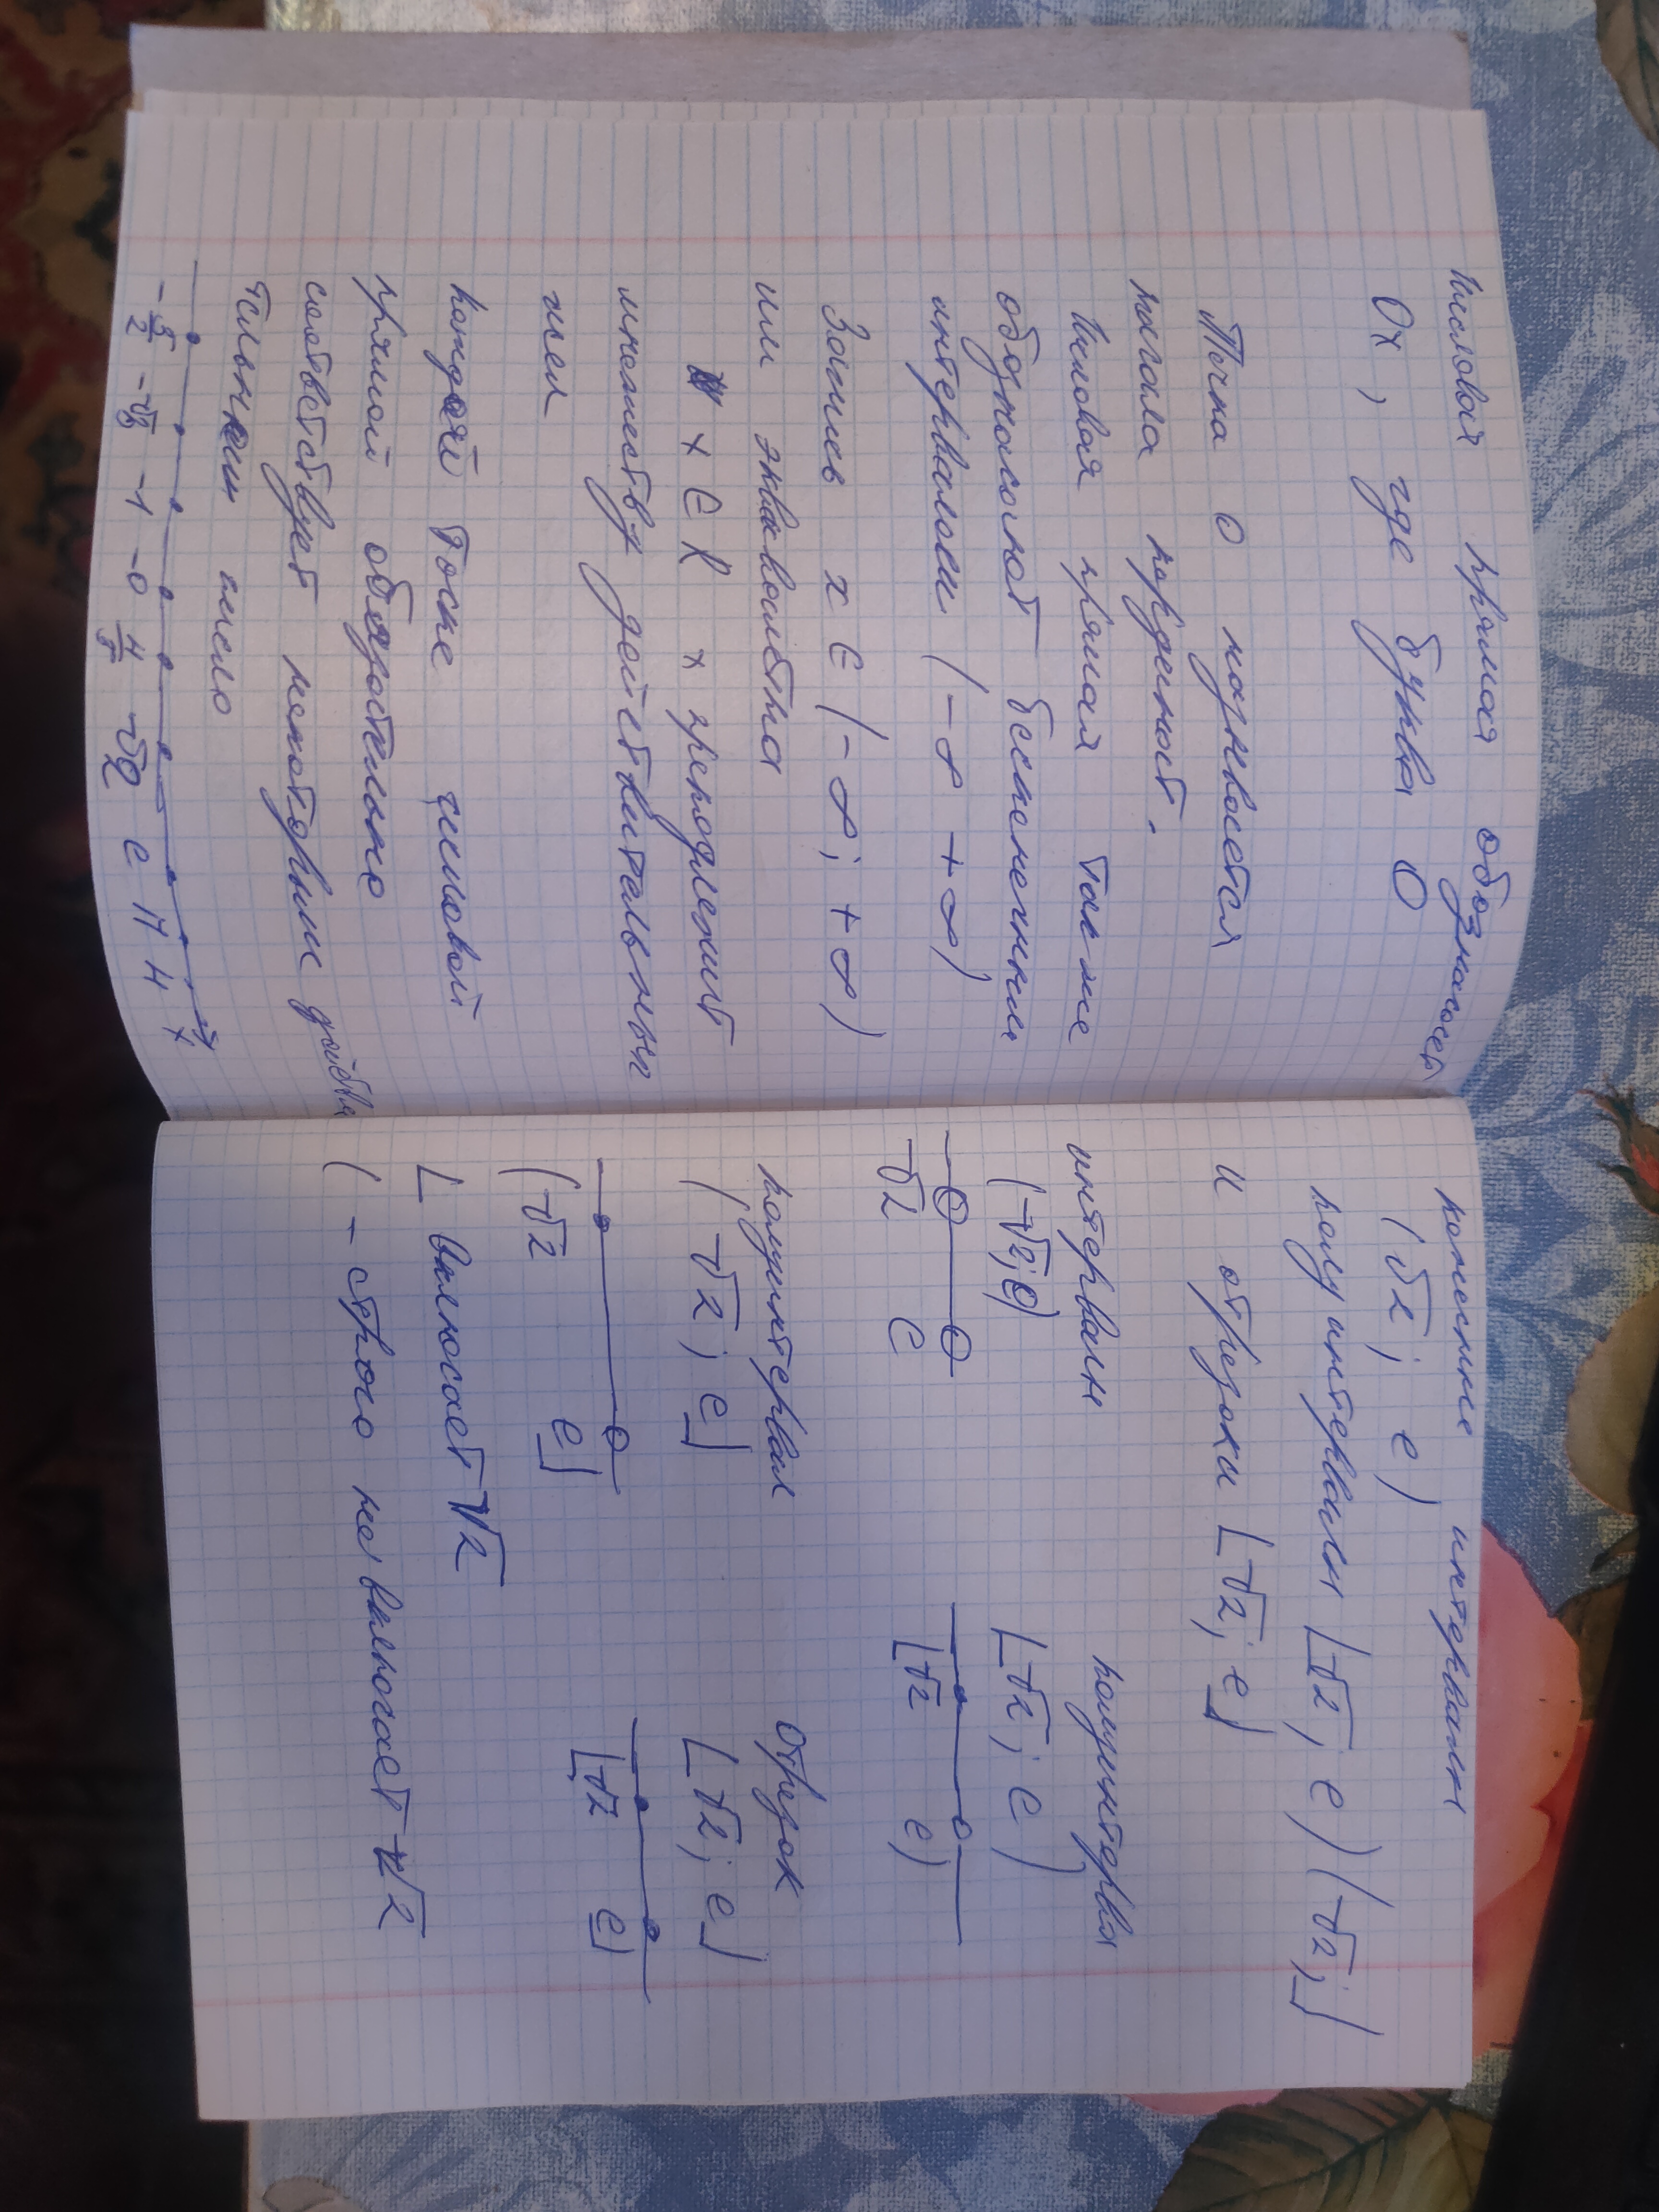 Числовая прямая обозначает
Ox, где буква O
Точка O называется
начала координат.
Числовая прямая так же
обозначают бесконечным
интервалом (-∞ +∞)
Запись x ∈ (-∞; +∞)
или эквивалентна
x ∈ R x принадлежит
множеству действительных
чисел
Каждой точке числовой
прямой обязательно
соответствует некоторым действи
тельным число
-√3 -1 -0 √2 e П 4 x
конечные интервалы
(√2; e)
полуинтервалы [√2; e) (√2; ]
и отрезки [√2; e]
интервалы полуинтервал
(√2; e) [√2; e)
√2 e [√2 e)
полуинтервал Отрезок
(√2; e] [√2; e]
(√2 e] [√2 e]
[ включает √2
( - строго не включает √2